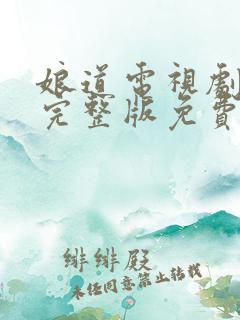 娘道電視劇
完整版免費
緋緋殿
未任同意禁止转载